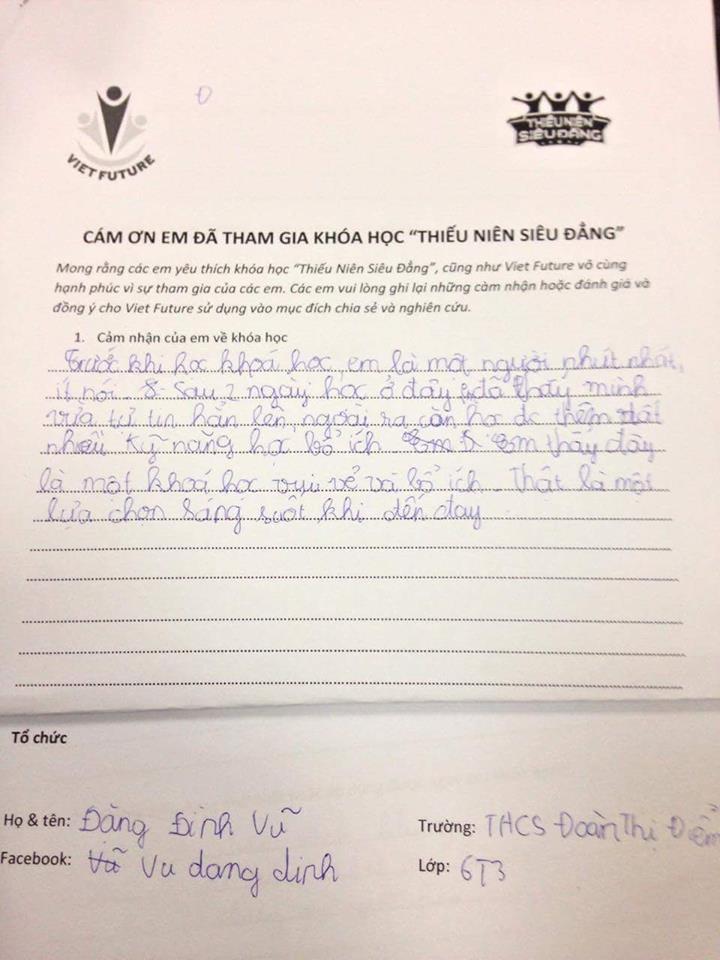 Đ
VIET FUTURE
THIẾU NIÊN
SIÊU ĐẲNG
CÁM ƠN EM ĐÃ THAM GIA KHÓA HỌC “THIẾU NIÊN SIÊU ĐẲNG”
Mong rằng các em yêu thích khóa học “Thiếu Niên Siêu Đẳng”, cũng như Viet Future vô cùng
hạnh phúc vì sự tham gia của các em. Các em vui lòng ghi lại những cảm nhận hoặc đánh giá và
đồng ý cho Viet Future sử dụng vào mục đích chia sẻ và nghiên cứu.
1. Cảm nhận của em về khóa học
Trước khi học khoá học, em là một người nhút nhát,
ít nói. Sau 2 ngày học ở đây đã thấy mình
vừa tự tin hẳn lên, ngoài ra còn học dc thêm rất
nhiều kỹ năng học bổ ích. Em thấy đây
là một khoá học vui vẻ và bổ ích. Thật là một
lựa chọn sáng suốt khi đến đay
Tổ chức
Họ & tên: Đặng Đình Vũ
Trường: THCS Đoàn Thị Điểm
Facebook: Vu dang dinh
Lớp: 6T3